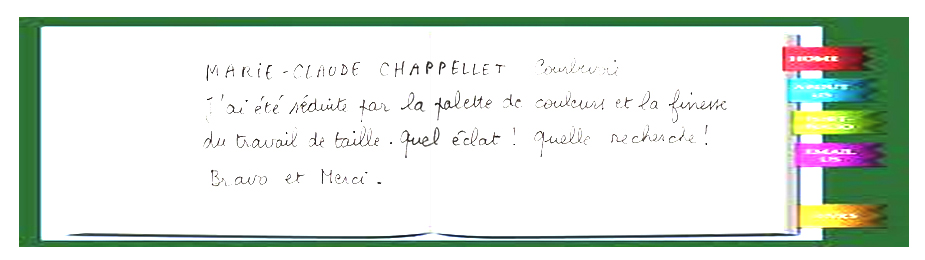 MARIE-CLAUDE CHAPPELLET Courbevoie
J'ai été séduite par la palette de couleurs et la finesse
du travail de taille. Quel éclat ! quelle recherche !
Bravo et Merci.
HOME
ABOUT
US
PORT-
FOLIO
EMAIL
US